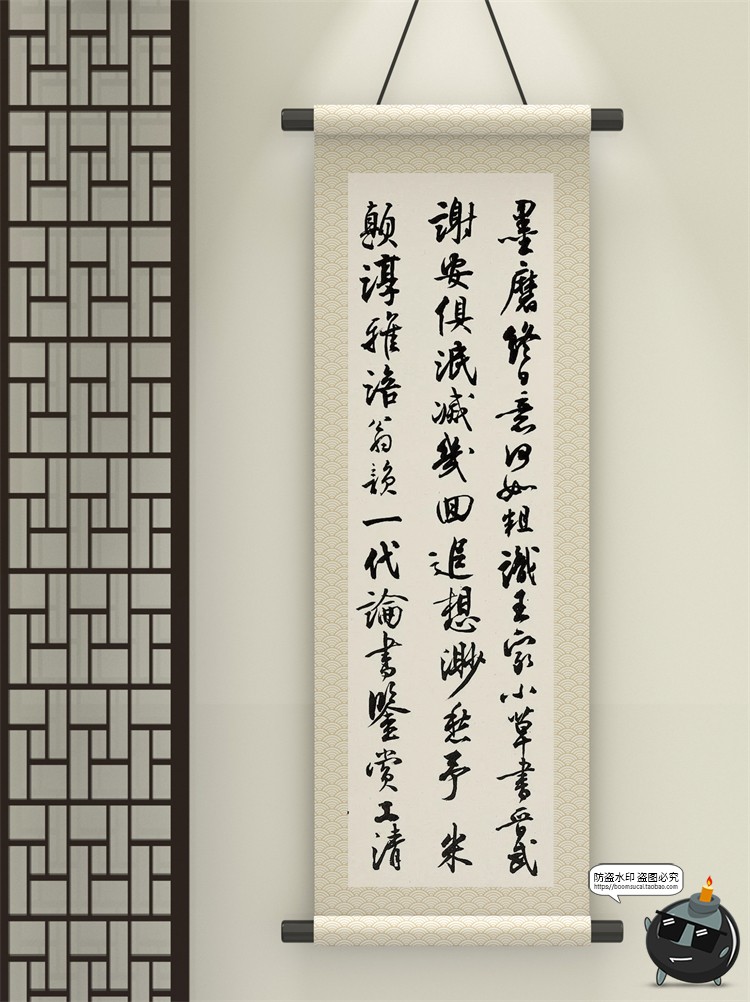 墨磨終日意何如粗識王家小草書晉武
謝安俱泯滅幾回追想渺愁予米
顛淳雅涪翁韻一代論書鑒賞工清
防盗水印 盗图必究
https//boomsucai.taobao.com